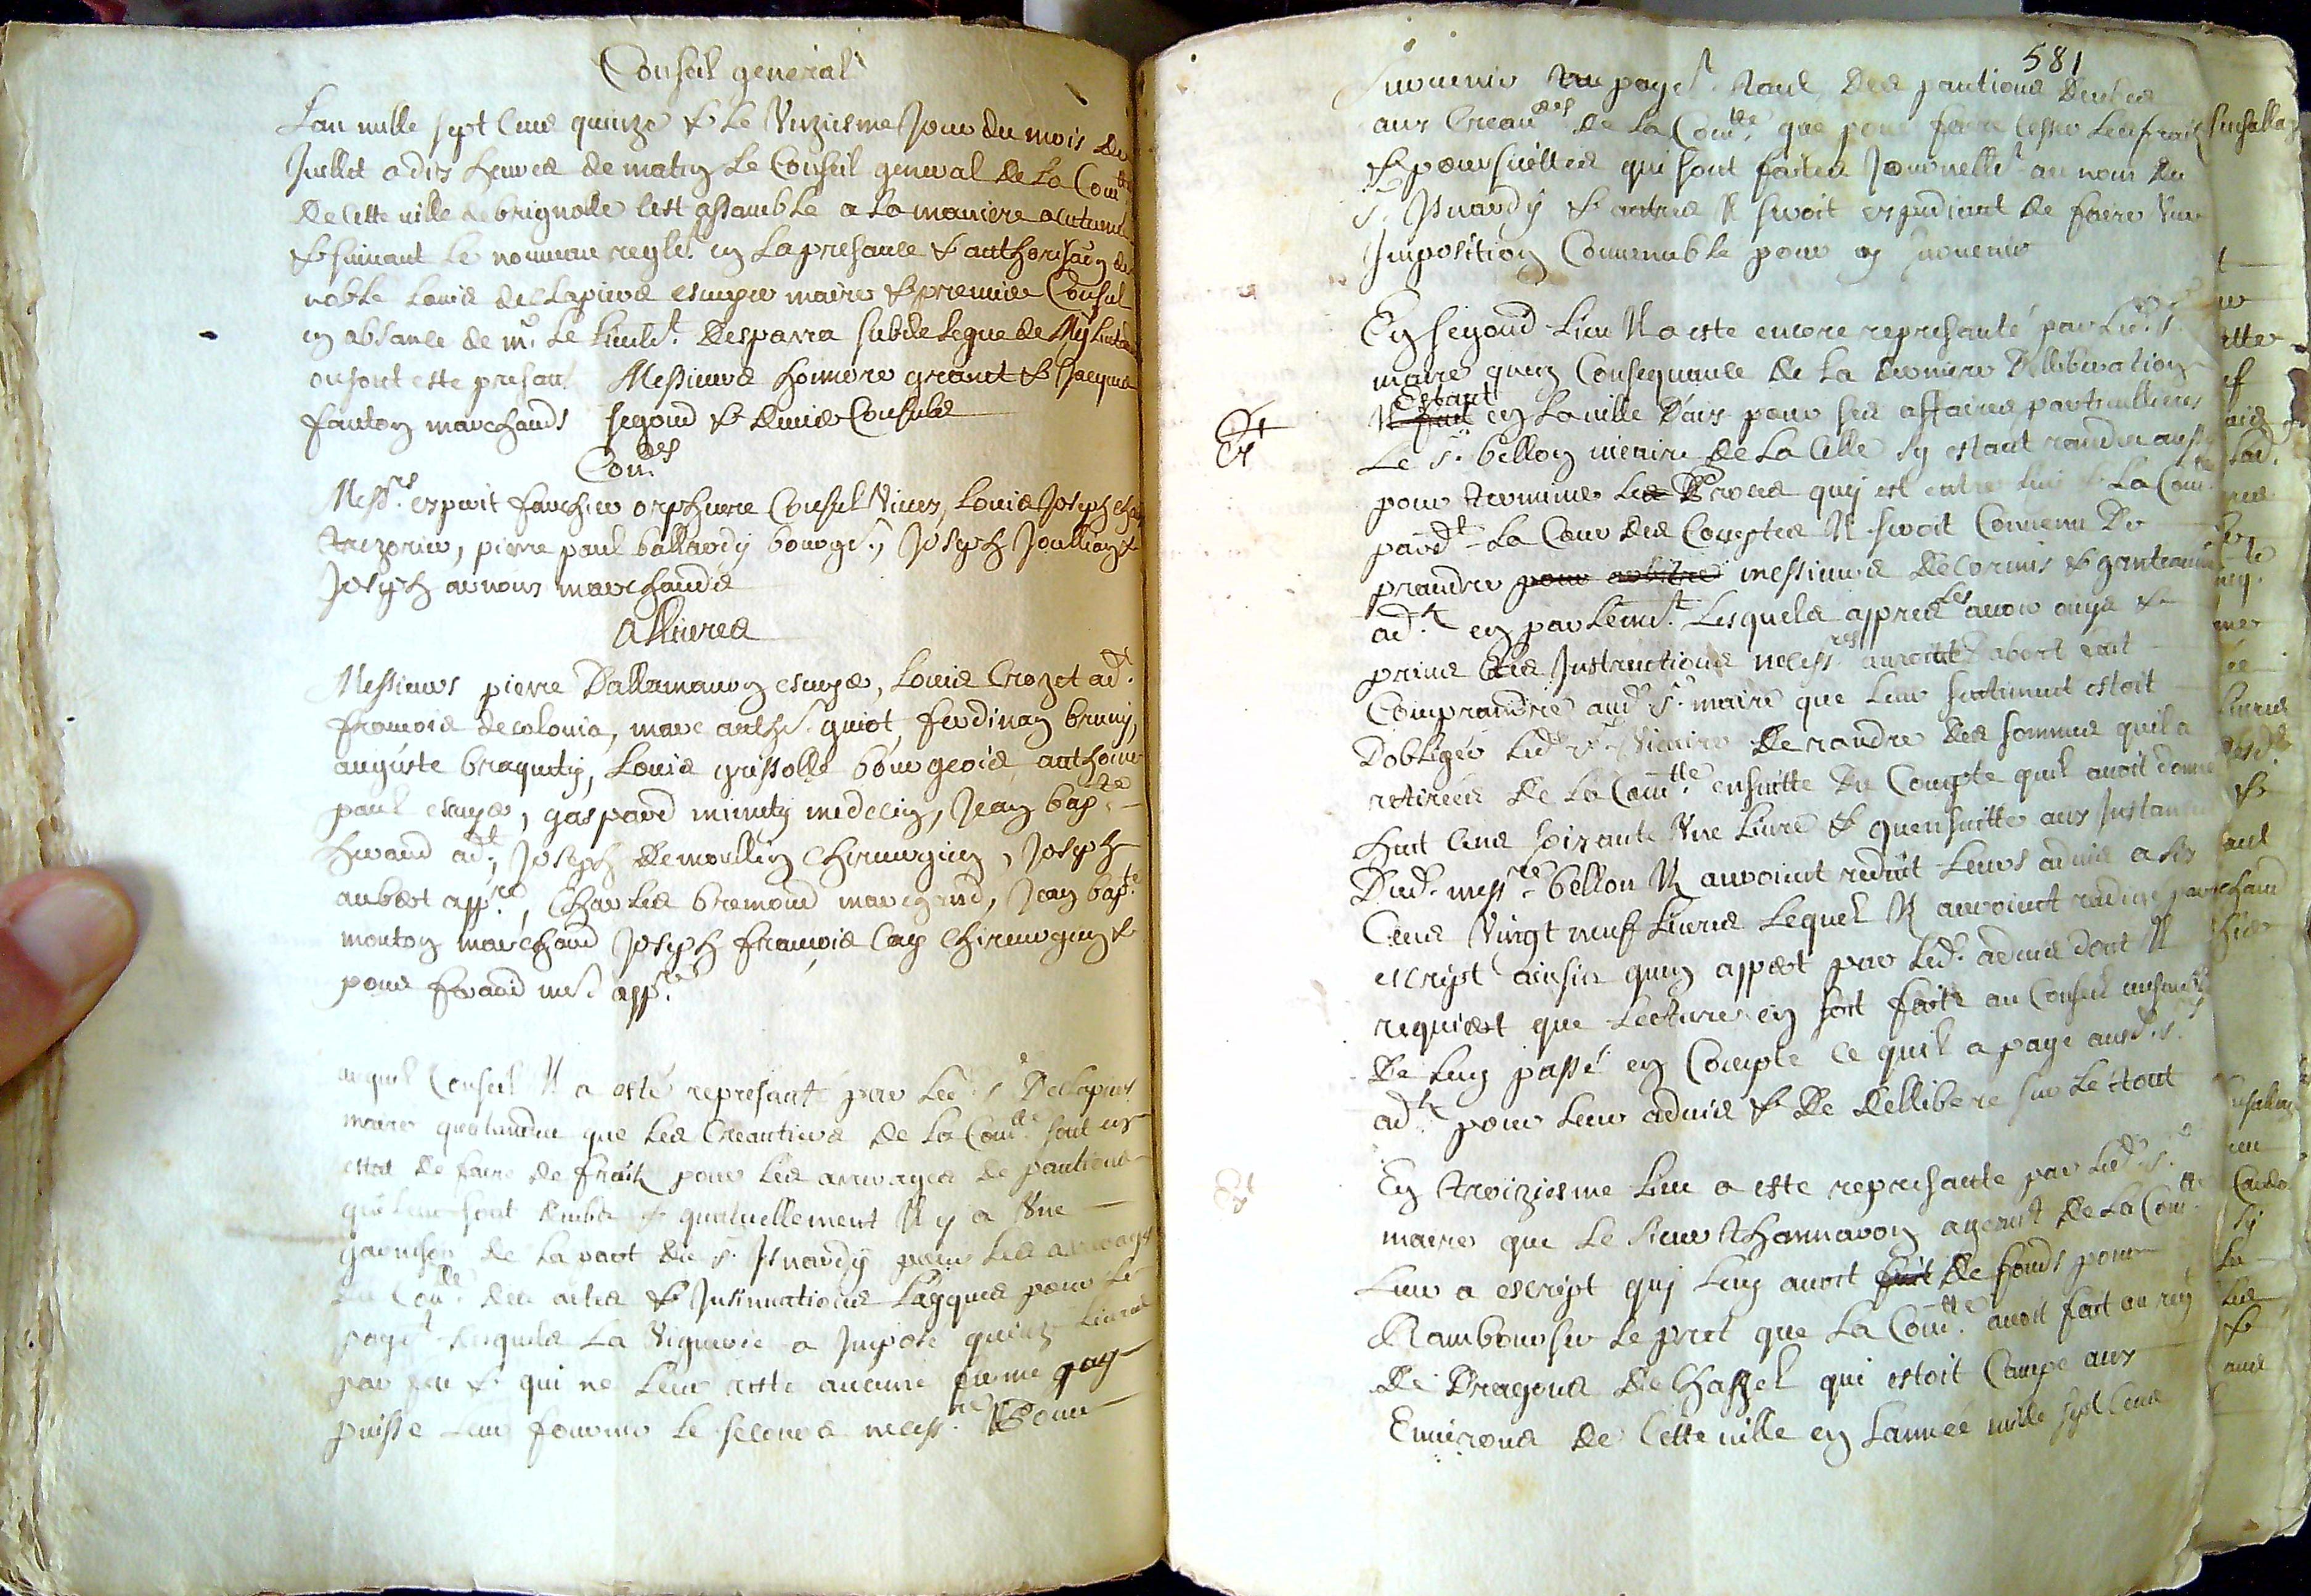 Conseil general
Lan mille sept cens quinze & le Unziesme Jour du mois de
Juillet a dix heures de matin Le Conseil general de La Com.tté
de cette ville de brignolle cest assamble a la maniere acutumée
& suivant le nouveau regle.t en La presance & authorisaon de
noble Louis de Clapiers escuyer maire & premier Consul
en absance de m.r Le Lieute.t Desparra subdelegue de
ou sont este presans Messieurs honnore granet & Jacques
fanton marchands segond & dernier Consuls
Con.ers
Mess.rs esprit fauchier orpheuvre Consul Vieux, Louis Joseph
trezorier, pierre paul ballardy bourge.s, Joseph Joullian &
Joseph arnoux marchands
Alliverés
Messieurs pierre Dallamanon escuyer, Louis Crozet ad.t
francois decolonia, marc anth.e guiot, ferdinan bruny,
auguste braquety, Louis grissolle bourgeois anthoine
paul escuyer, gaspard minuty medecin, Jean bap.te
heraud ad.t, Joseph Demoullin Chirurgien, Joseph
aubert app.re, Charles bremond marchand, Jean bap.te
monton marchand Joseph francois Cay Chirurgien &
pons feraud me.e app.re
auquel Conseil Il a esté represanté par Led. s.r De Clapiers
maire quattandeu que Les Creantiers de La Com.tté sont en
estat de faire de fraix pour Les arreyrages de pantions
qui leur sont deubz & quatuellement Il y a Une
garnison de La part du s.r Isnardy pour Les arreyages
du Con.lle des actes & Insinuations Laÿques pour Le
paye.t desquels La Viguerie a Imposé quinze Livres
par feu & qui ne Leur reste aucune ferme quy
puisse Leur fournir le secours necess.re Pour
581
survenir au paye.t tant des pantions deubes
aux Crean.ers de La Com.tté que pour faire cesser Les fraix
& poursuittes qui sont faites Journelle.t au nom du
s.r Isnardy & autres Il seroit expediant de faire Une
Imposition Convenable pour y survenir
En segond Lieu Il a este encore represanté par Led. s.r
maire quen Consequance de La derniere Delliberation
Estant
en La ville Daix pour ses affaires particullieres
Le s.r bellon vicaire de La Celle sy estant randeu aussy
pour terminer Le Proces quy est entre Luy & La Com.tté
pard.t La Cour des Comptes Il seroit Convenu De
prandre pour arbitre messieurs decormis & ganteaume
ad.ts en parleme.t Lesquels appres Les avoir ouys &
prins Les Instructions necess.res auroint dabort fait
Comprandre aud. s.r maire que Leur sentiment estoit
Dobliger Led. s.r Vicaire De randre des sommes quil a
retirées De La Com.tté ensuitte Du Compte quil avoit donné
huit cens soixante Une Livre & quensuitte aux Instances
Dud. mess.re bellon Ils auroint reduit Leurs advis a six
Cens Vingt neuf Livres Lequel Ils auroint redigé par
escript ainsin quen appert par Led. advis dont Il
requiert que Lecture en soit faite au Conseil
De Luy passé en Compte ce quil a payé ausd. s.rs
ad.ts pour Leur advis & De Delliberé sur Le tout
En troiziesme Lieu a este represante par Led. s.r
maire que Le sieur thannaron agenct de La Com.tté
Leur a escript quj Luy avoit fait de fonds pour
Rambourser Le pret que La Com.tté avoit fait au reg.t
De Dragons de hassel qui estoit Campé aux
Environs de Cette ville en Lannée mille sept cens